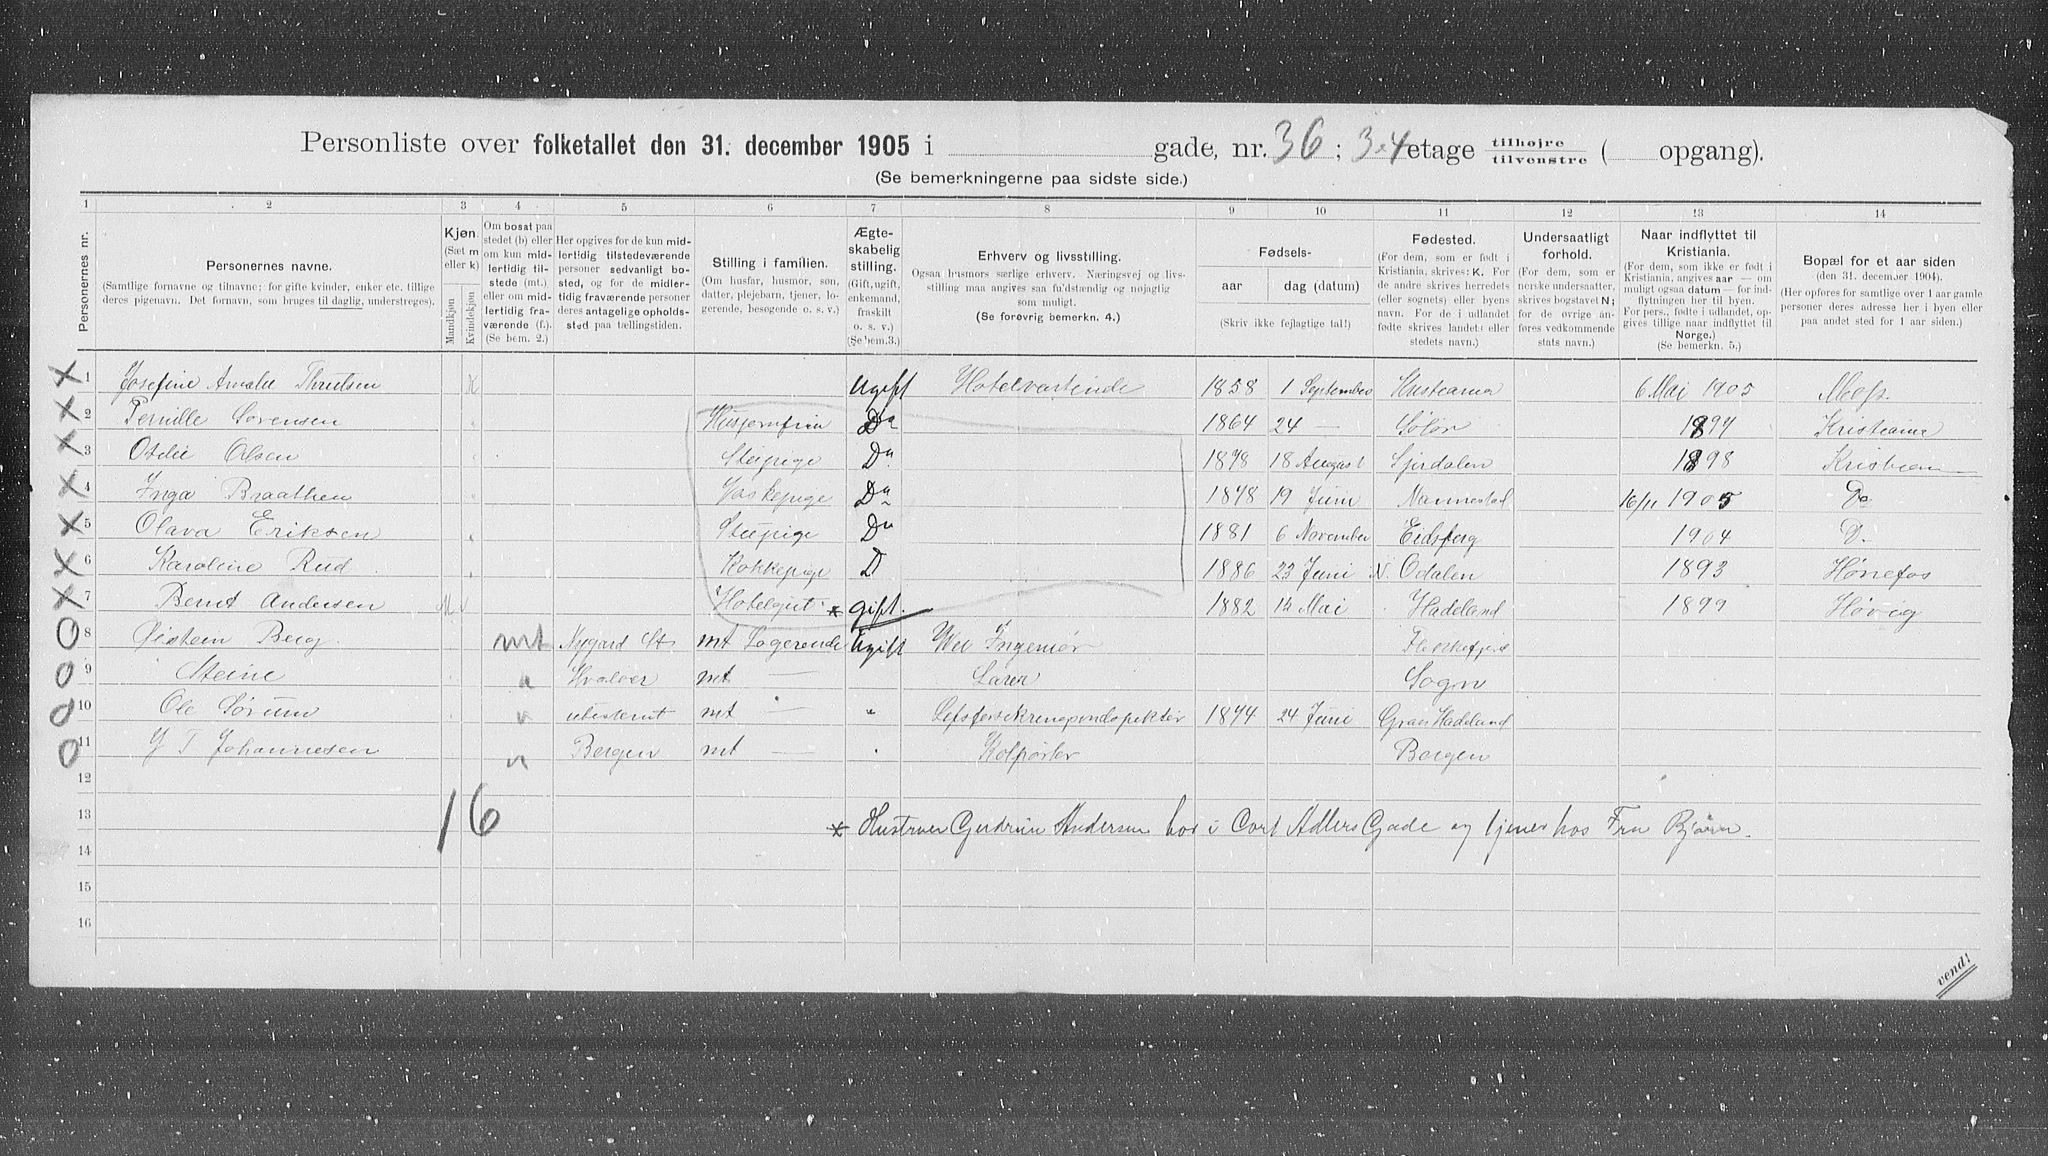 Personliste over folketallet den 31. december 1905 i gade, nr. 36; 3.4 etage tilhøjre tilvenstre ( opgang).
(Se bemerkningerne paa sidste side.)
1 2 3 4 5 6 7 8 9 10 11 12 13 14
Personernes nr.
Personernes navne.
(Samtlige fornavne og tilnavne; for gifte kvinder, enker etc. tillige
deres pigenavn. Det fornavn, som bruges til daglig, understreges).
Kjøn.
(Sæt m
eller k)
Mandkjøn
Kvindekjøn
Om bosat paa
stedet (b) eller
om kun mid-
lertidig til-
stede (mt.)
eller om mid-
lertidig fra-
værende (f.).
(Se bem. 2.)
Her opgives for de kun mid-
lertidig tilstedeværende
personer sedvanlig bo-
sted, og for de midler-
tidig fraværende personer
deres antagelige opholds-
sted paa tællingstiden.
Stilling i familien.
(Om husfar, husmor, søn,
datter, plejebarn, tjener, lo-
gerende, besøgende o. s. v.)
Ægte-
skabelig
stilling.
(Gift, ugift,
enkemand,
fraskilt
o. s. v.)
(Se bem.3.)
Erhverv og livsstilling.
Ogsaa husmors særlige erhverv. Næringsvej og livs-
stilling maa angives saa fuldstændig og nøjagtig
som muligt.
(Se forøvrig bemerkn. 4.)
Fødsels-
aar dag (datum)
(Skriv ikke fejlagtige tal!)
Fødested.
(For dem, som er født i
Kristiania, skrives: K. For
de andre skrives herredets
(eller sognets) eller byens
navn. For de i udlandet
fødte skrives landets eller
stedets navn.)
Undersaatligt
forhold.
(For dem, som er
norske undersaatter,
skrives bogstavet N;
for de øvrige an-
føres vedkommende
stats navn.)
Naar indflyttet til
Kristiania.
(For dem, som ikke er født i
Kristiania, angives aar — om
muligt ogsaa datum — for ind-
flytningen her til byen.
For pers., fødte i udlandet, op-
gives tillige naar indflyttet til
Norge.)
(Se bemerkn. 5.)
Bopæl for et aar siden
(den 31. december 1904).
(Her opføres for samtlige over 1 aar gamle
personer deres adresse her i byen eller
paa andet sted for 1 aar siden.)
X 1 Josefine Amalie Thrulsen K Ugift Hotelvertinde 1858 1 September 6 Mai 1905 Moss
X 2 Pernille Sørensen Husjomfru Do 1864 24 — Solør 1897 Kristiania
X 3 Otelie Olsen Stuepige Do 1878 18 August 1898 Kristiania
X 4 Inga Braathen Vaskepige Do 1878 19 Juni Nannestad 16/11 1905 Do
X 5 Olava Eriksen Stuepige Do 1881 6 November Eidsberg 1904 D.
X 6 Karoline Rud Kokkepige D 1886 23 Juni N. Odalen 1893 Hønefos
X 7 Bernt Andersen M Hotelgut * gift. 1882 12 Mai Hadeland 1899 Høvig
O 8 Øistein Berg mt Nygard St. mt Logerende Ugift Vei Ingeniør Flekkefjord
O 9 Steine " Hvaler mt — Lærer Sogn
O 10 Ole Sørum " ubestemt mt — " Lifsforsekringsindspektør 1874 24 Juni Gran Hadeland
O 11 J T Johannesen " Bergen mt — Kolportør Bergen
12
13 16 * Hustruen Gudrun Andersen bor i Cort Adlers Gade og tjener hos Fru Bjørn.
14
15
16
vend!